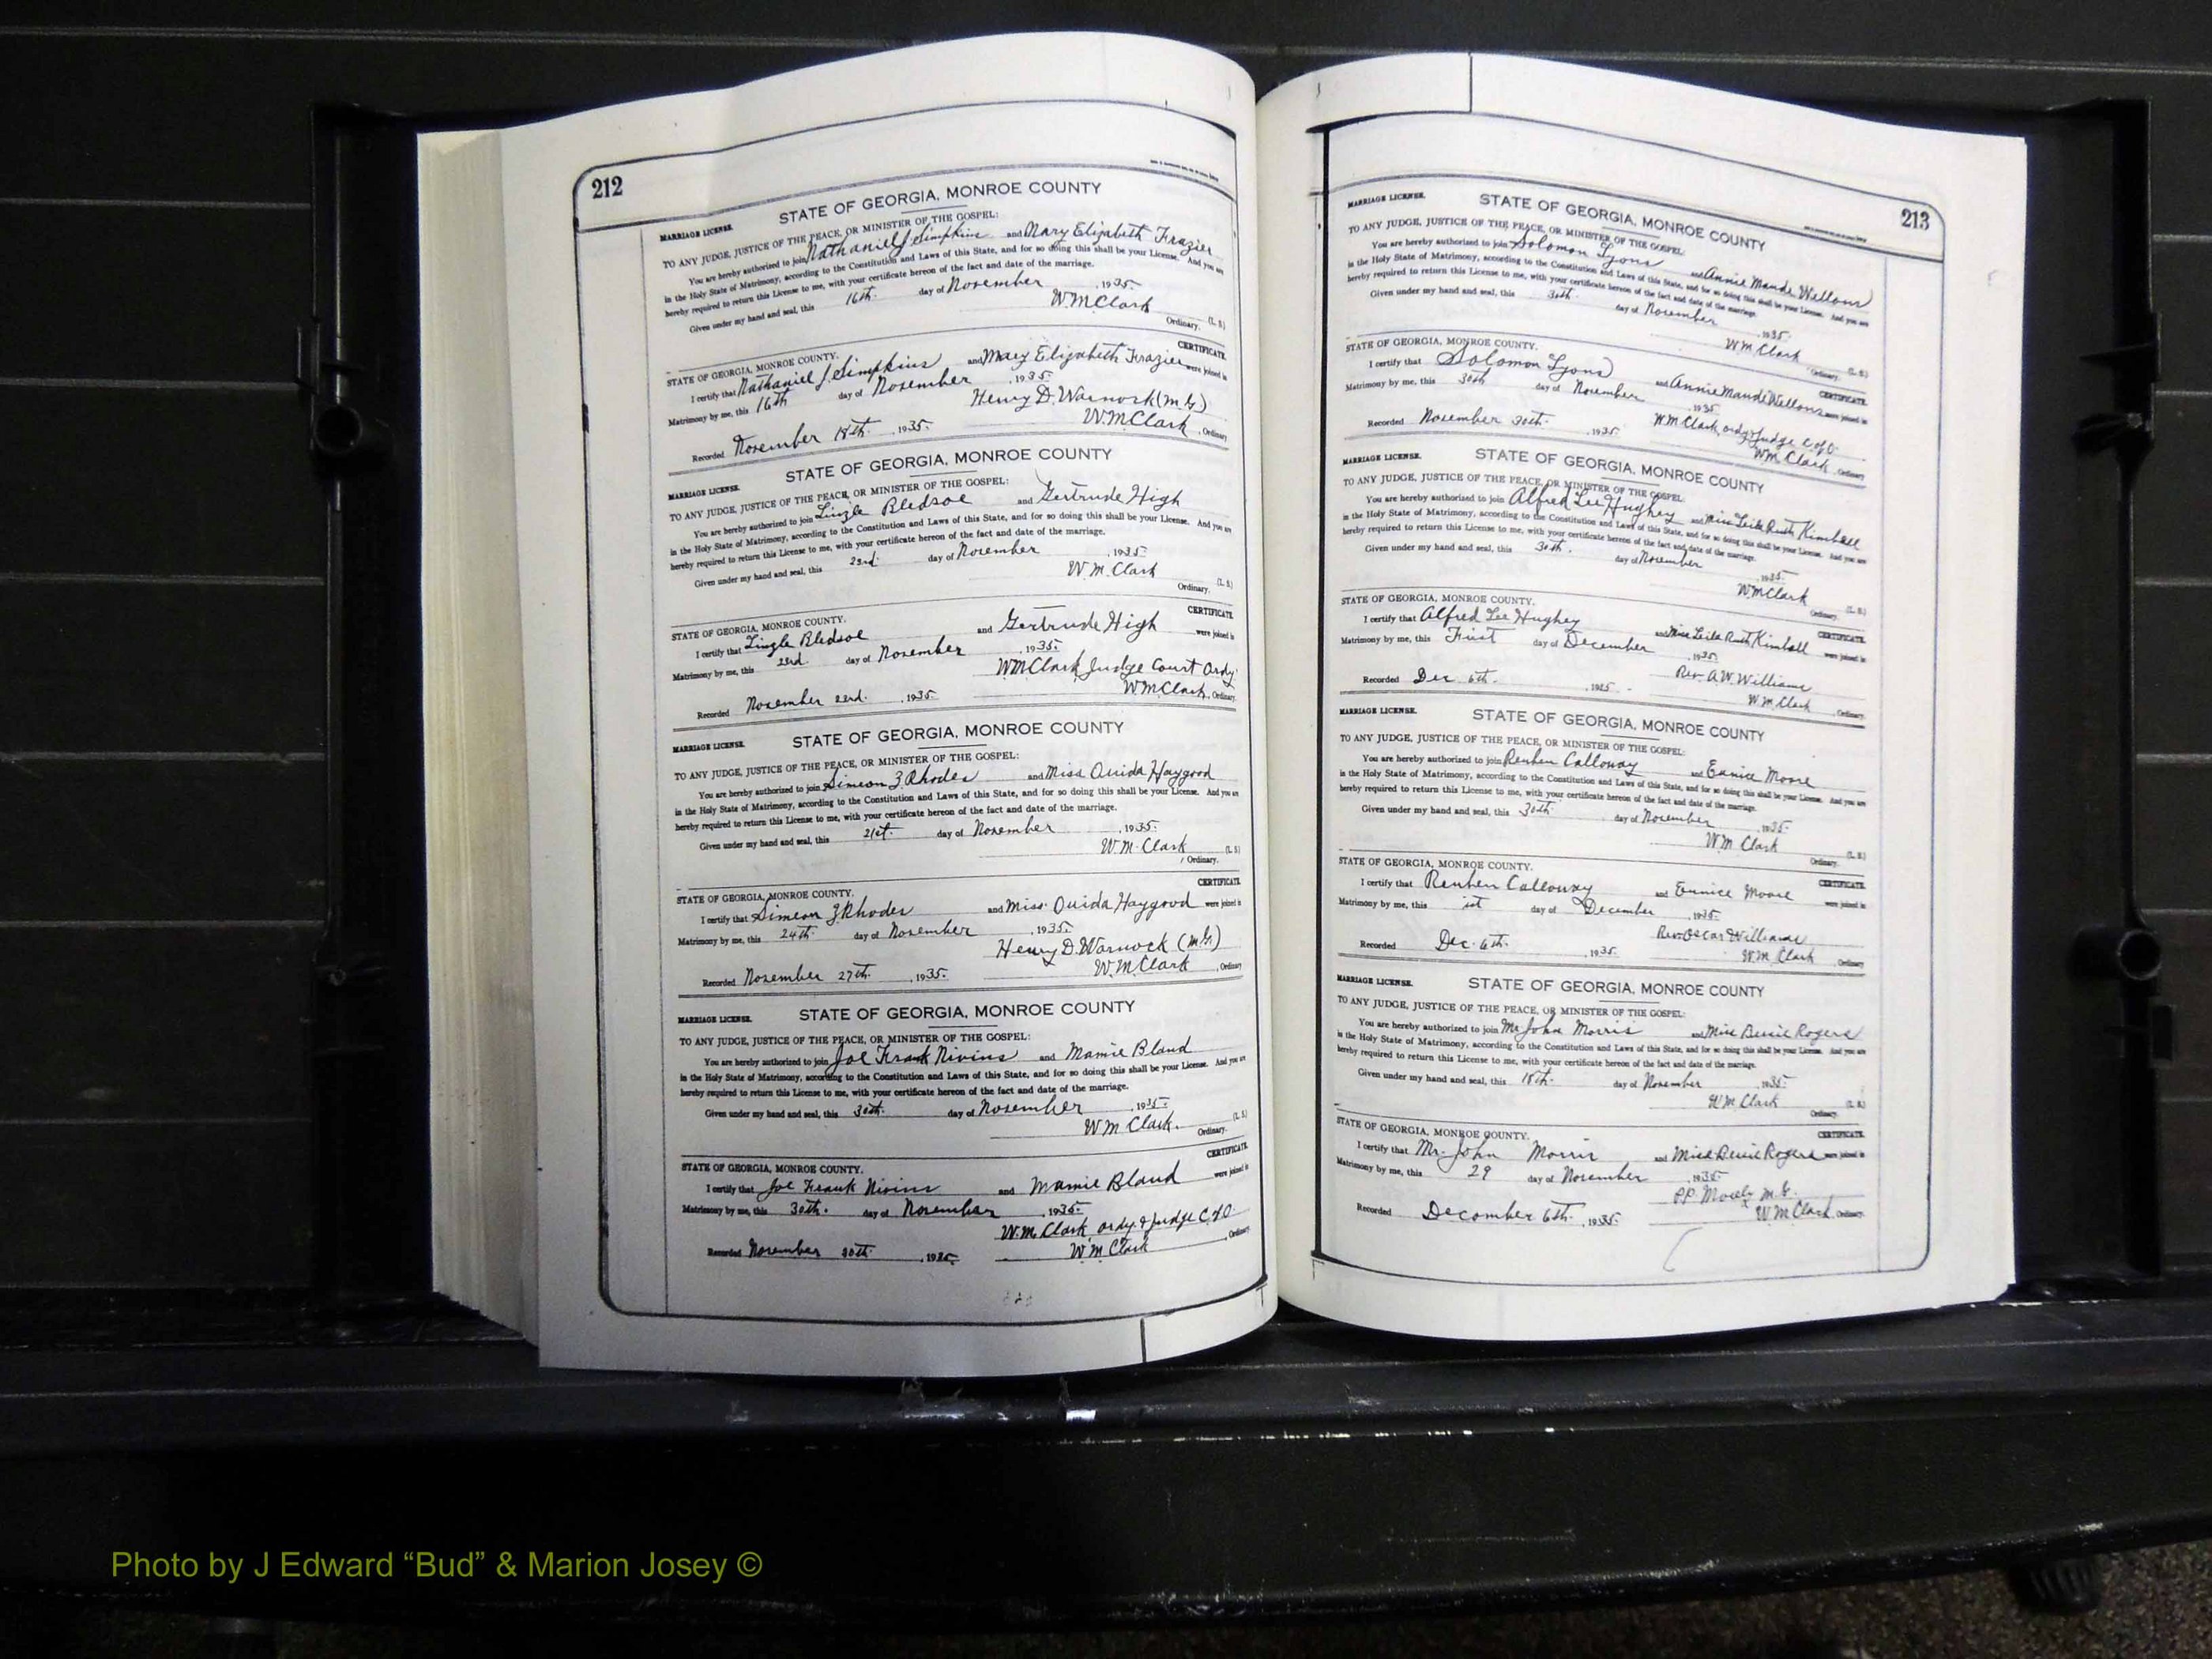 212
MARRIAGE LICENSE. STATE OF GEORGIA, MONROE COUNTY
TO ANY JUDGE, JUSTICE OF THE PEACE, OR MINISTER OF THE GOSPEL:
You are hereby authorized to join Nathaniel J. Simpkins and Mary Elizabeth Frazier
in the Holy State of Matrimony, according to the Constitution and Laws of this State, and for so doing this shall be your License. And you are
hereby required to return this License to me, with your certificate hereon of the fact and date of the marriage.
Given under my hand and seal, this 16th. day of November, 1935.
W.M.Clark (L. S.)
Ordinary.
STATE OF GEORGIA, MONROE COUNTY. CERTIFICATE.
I certify that Nathaniel J. Simpkins and Mary Elizabeth Frazier were joined in
Matrimony by me, this 16th day of November, 1935.
Henry D. Warnock (M.G.)
Recorded November 18th. , 1935. W.M.Clark , Ordinary
MARRIAGE LICENSE. STATE OF GEORGIA, MONROE COUNTY
TO ANY JUDGE, JUSTICE OF THE PEACE, OR MINISTER OF THE GOSPEL:
You are hereby authorized to join Lingle Bledsoe and Gertrude High
in the Holy State of Matrimony, according to the Constitution and Laws of this State, and for so doing this shall be your License. And you are
hereby required to return this License to me, with your certificate hereon of the fact and date of the marriage.
Given under my hand and seal, this 23rd. day of November , 1935.
W.M. Clark (L. S.)
Ordinary.
STATE OF GEORGIA, MONROE COUNTY. CERTIFICATE
I certify that Lingle Bledsoe and Gertrude High were joined in
Matrimony by me, this 23rd. day of November , 1935.
WM Clark, Judge Court Ordy
Recorded November 23rd. , 1935. W.M.Clark, Ordinary
MARRIAGE LICENSE. STATE OF GEORGIA, MONROE COUNTY
TO ANY JUDGE, JUSTICE OF THE PEACE, OR MINISTER OF THE GOSPEL:
You are hereby authorized to join Simeon Z. Rhodes and Miss Ouida Haygood
in the Holy State of Matrimony, according to the Constitution and Laws of this State, and for so doing this shall be your License. And you are
hereby required to return this License to me, with your certificate hereon of the fact and date of the marriage.
Given under my hand and seal, this 21st. day of November , 1935.
W.M. Clark (L. S.)
Ordinary.
STATE OF GEORGIA, MONROE COUNTY. CERTIFICATE
I certify that Simeon Z. Rhodes and Miss. Ouida Haygood were joined in
Matrimony by me, this 24th. day of November , 1935.
Henry D. Warnock (M.G.)
Recorded November 27th. , 1935. W.M.Clark , Ordinary
MARRIAGE LICENSE. STATE OF GEORGIA, MONROE COUNTY
TO ANY JUDGE, JUSTICE OF THE PEACE, OR MINISTER OF THE GOSPEL:
You are hereby authorized to join Joe Frank Nivins and Mamie Bland
in the Holy State of Matrimony, according to the Constitution and Laws of this State, and for so doing this shall be your License. And you are
hereby required to return this License to me, with your certificate hereon of the fact and date of the marriage.
Given under my hand and seal, this 30th. day of November , 1935.
W M Clark. (L. S.)
Ordinary.
STATE OF GEORGIA, MONROE COUNTY. CERTIFICATE
I certify that Joe Frank Nivins and Mamie Bland were joined in
Matrimony by me, this 30th. day of November , 1935.
W.M. Clark, ordy. & Judge C of O.
Recorded November 30th. , 1935. W M Clark , Ordinary
213
MARRIAGE LICENSE. STATE OF GEORGIA, MONROE COUNTY
TO ANY JUDGE, JUSTICE OF THE PEACE, OR MINISTER OF THE GOSPEL:
You are hereby authorized to join Solomon Lyons and Annie Maude Wellons
in the Holy State of Matrimony, according to the Constitution and Laws of this State, and for so doing this shall be your License. And you are
hereby required to return this License to me, with your certificate hereon of the fact and date of the marriage.
Given under my hand and seal, this 30th. day of November , 1935.
W M Clark (L. S.)
Ordinary.
STATE OF GEORGIA, MONROE COUNTY. CERTIFICATE
I certify that Solomon Lyons and Annie Maude Wellons were joined in
Matrimony by me, this 30th day of November , 1935.
W M Clark, ordy & Judge C of O.
Recorded November 30th. , 1935. WM. Clark , Ordinary
MARRIAGE LICENSE. STATE OF GEORGIA, MONROE COUNTY
TO ANY JUDGE, JUSTICE OF THE PEACE, OR MINISTER OF THE GOSPEL
You are hereby authorized to join Alfred Lee Hughey and Miss Leila Ruth Kimball
in the Holy State of Matrimony, according to the Constitution and Laws of this State, and for so doing this shall be your License. And you are
hereby required to return this License to me, with your certificate hereon of the fact and date of the marriage.
Given under my hand and seal, this 30th. day of November , 1935.
W M Clark (L. S.)
Ordinary.
STATE OF GEORGIA, MONROE COUNTY. CERTIFICATE
I certify that Alfred Lee Hughey and Miss Leila Ruth Kimball were joined in
Matrimony by me, this First day of December , 1935.
Rev. A.W. Williams
Recorded Dec. 6th. , 1935. W.M. Clark , Ordinary
MARRIAGE LICENSE. STATE OF GEORGIA, MONROE COUNTY
TO ANY JUDGE, JUSTICE OF THE PEACE, OR MINISTER OF THE GOSPEL:
You are hereby authorized to join Reuben Calloway and Eunice Moore
in the Holy State of Matrimony, according to the Constitution and Laws of this State, and for so doing this shall be your License. And you are
hereby required to return this License to me, with your certificate hereon of the fact and date of the marriage.
Given under my hand and seal, this 30th. day of November , 1935.
W M Clark (L. S.)
Ordinary.
STATE OF GEORGIA, MONROE COUNTY. CERTIFICATE
I certify that Reuben Calloway and Eunice Moore were joined in
Matrimony by me, this 1st day of December , 1935.
Rev. Oscar Williams
Recorded Dec. 6th. , 1935. W.M. Clark , Ordinary
MARRIAGE LICENSE. STATE OF GEORGIA, MONROE COUNTY
TO ANY JUDGE, JUSTICE OF THE PEACE, OR MINISTER OF THE GOSPEL:
You are hereby authorized to join Mr. John Morris and Miss Rogers
in the Holy State of Matrimony, according to the Constitution and Laws of this State, and for so doing this shall be your License. And you are
hereby required to return this License to me, with your certificate hereon of the fact and date of the marriage.
Given under my hand and seal, this 18th. day of November , 1935.
W M Clark (L. S.)
Ordinary.
STATE OF GEORGIA, MONROE COUNTY. CERTIFICATE
I certify that Mr. John Morris and Miss Rogers were joined in
Matrimony by me, this 29 day of November , 1935.
P.P. M.G.
Recorded December 6th. , 1935. W M Clark, Ordinary
Photo by J Edward “Bud” & Marion Josey ©